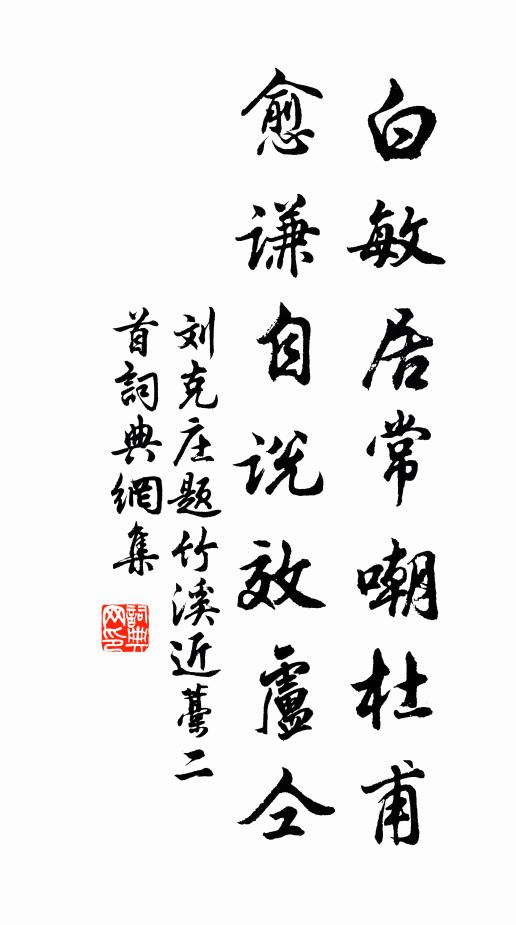 白敏居常嘲杜甫
愈谦自说效盧仝
刘克庄题竹溪近藁二
首詞典網集
詞典網印